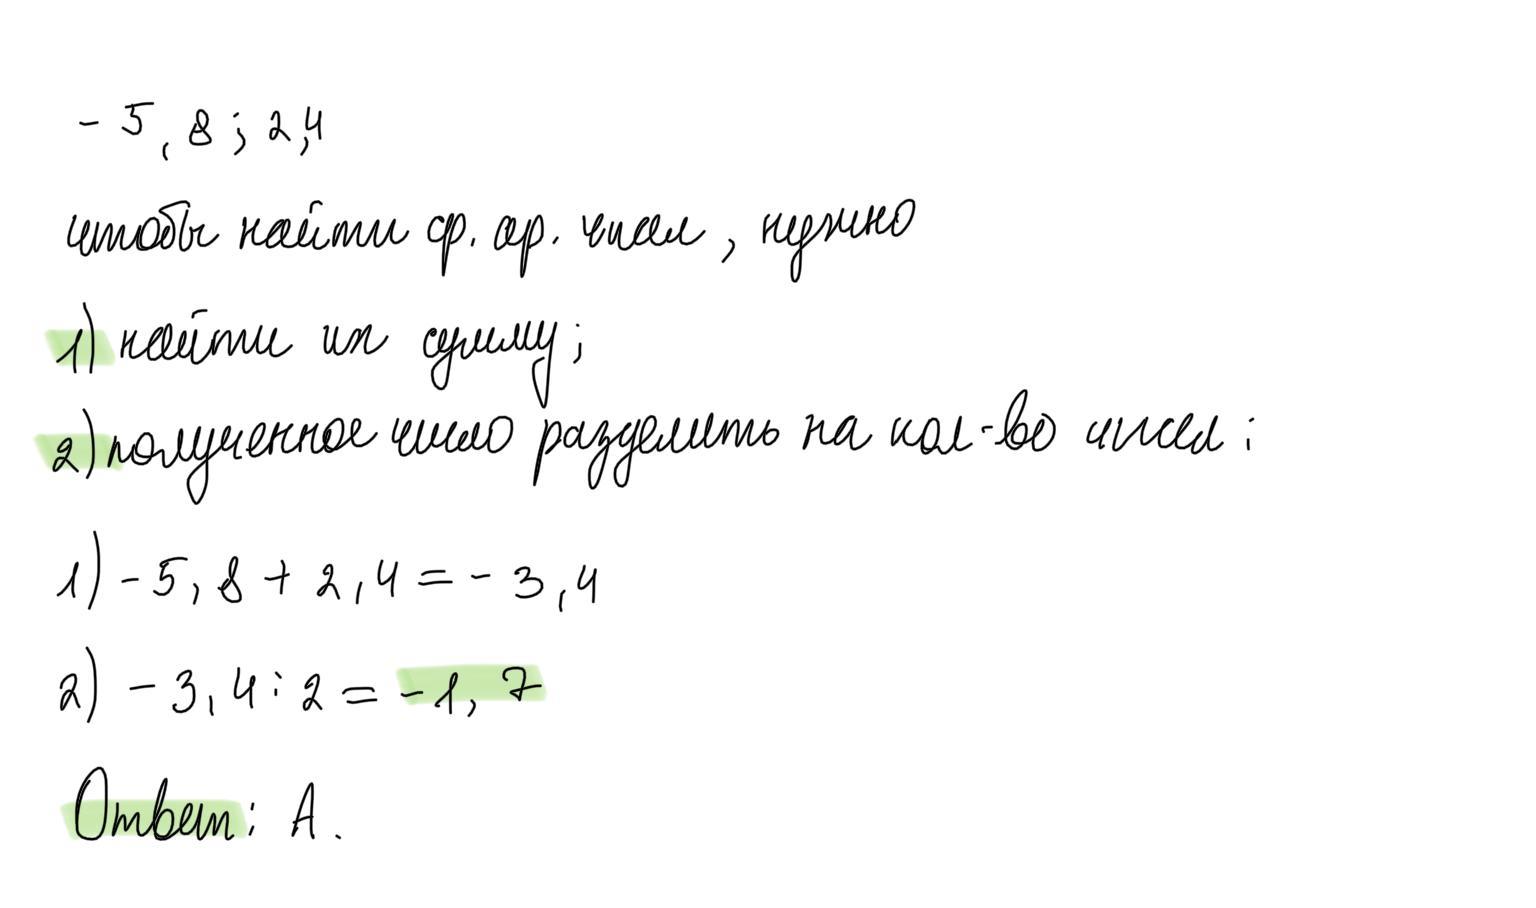 - 5,8; 2,4
чтобы найти ср. ар. чисел, нужно
1) найти их сумму;
2) полученное число разделить на кол-во чисел:
1) - 5,8 + 2,4 = - 3,4
2) - 3,4 : 2 = - 1,7
Ответ: А.